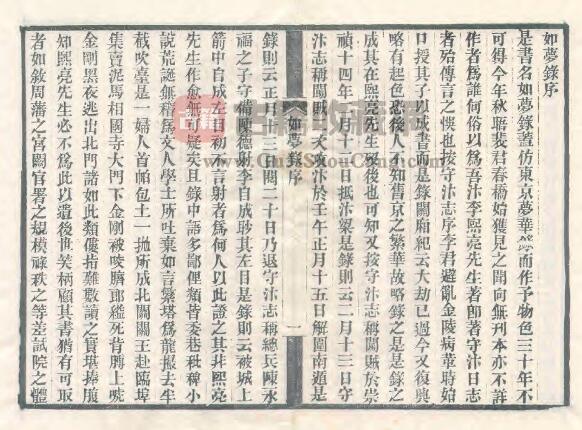 如夢錄序
是書名如夢錄蓋仿東京夢華錄而作予物色三十年不
可得今年秋聆裴君春橋始獲見之閒向無刊本亦不詳
作者爲誰何俗以爲吾汴李熙亮先生著卽著守汴日志
者殆傳言之悞也按守汴志序李君避亂金陵病革時始
口授其子以成書而是錄關廂紀云大劫已過今又復興
略有起色恐後人不知舊京之繁華故略錄之是是錄之
成其在熙亮先生歿後也可知又按守汴志稱闖賊於崇
禎十四年二月十二日抵汴梁是錄則云二月十三日守
汴志稱闖賊二次攻汴於壬午正月十五日解圍南遁是
如夢錄序
一
錄則云正月初三日開二十日乃退守汴志稱總兵陳永
福之子守備陳德射李自成眇其左目是錄則云被城上
箭中自成左目初不言射者爲何人以此證之其非熙亮
先生作愈無可疑矣且錄中語多鄙俚類皆委巷秕稗小
說荒誕無稽爲文人學士所吐棄如言繁塔爲龍撮去半
截吹臺是一婦人首帕包土一拋所成北關關王赴臨埠
集賣泥馬相國寺大門下金剛被咬臍郎縊死背膊上唬
金剛黑夜逃出北門諸如此類僂指難數讀之實堪捧腹
知熙亮先生必不爲此以遺後世笑柄顧其書猶有可取
者如敘周藩之宮闕官署之規模祿秩之等差試院之體